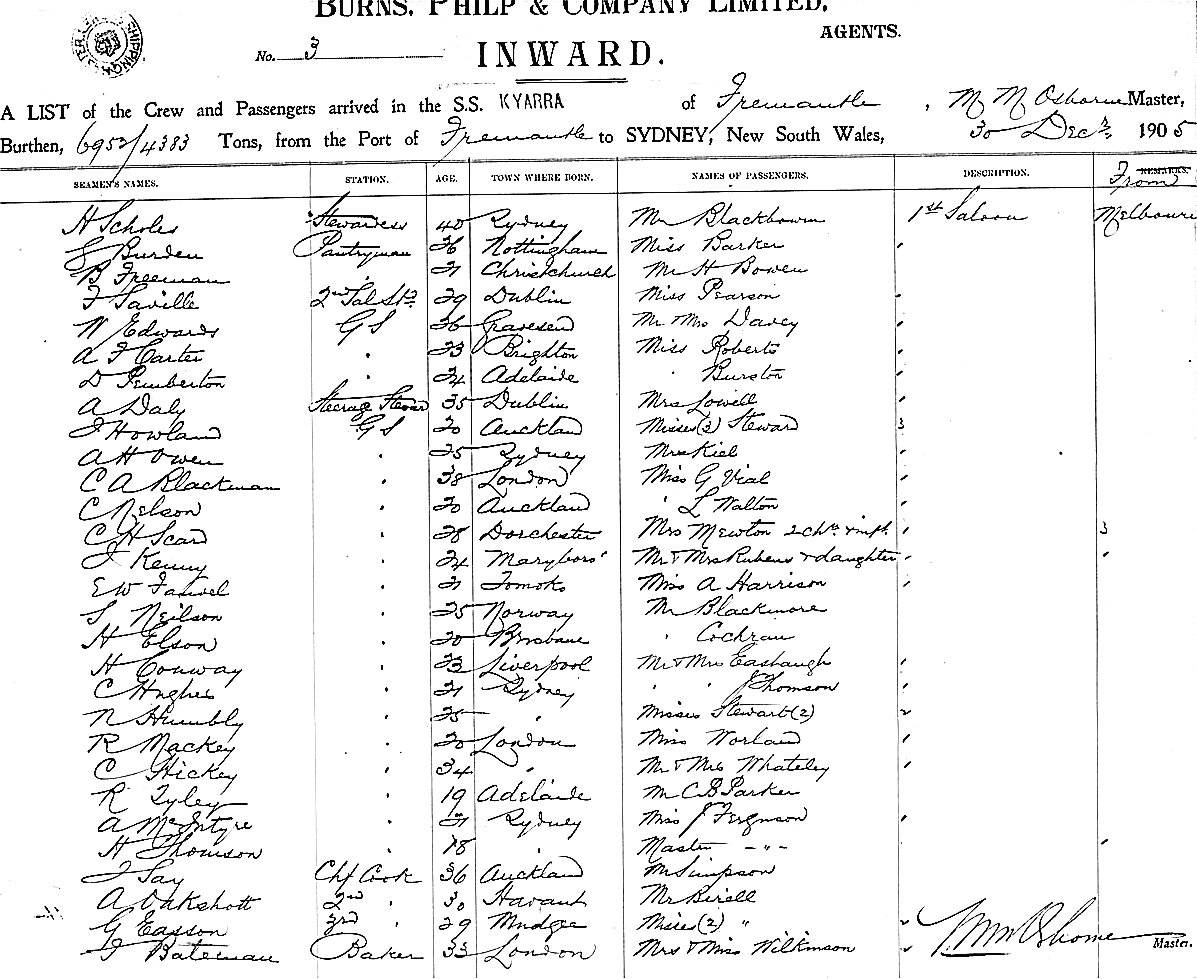 BURNS, PHILP & COMPANY LIMITED.
AGENTS.
No. 3
INWARD.
A LIST of the Crew and Passengers arrived in the S.S. KYARRA of Fremantle, M M Osborne Master,
Burthen, 6952/4383 Tons, from the Port of Fremantle to SYDNEY, New South Wales, 30 Decr 1905
SEAMEN'S NAMES. STATION. AGE. TOWN WHERE BORN. NAMES OF PASSENGERS. DESCRIPTION. REMARKS. From
H Scholes Stewardess 40 Sydney Mr Blackbourn 1st Saloon Melbourne
Burden Pantryman 26 Nottingham Miss Barker "
B Freeman " 21 Christchurch Mr H Bowen
F Saville 2nd Sal Std 29 Dublin Miss Pearson "
W Edwards GS 36 Gravesend Mr & Mrs Davey "
A F Carter " 23 Brighton Miss Roberts "
D Pemberton " 24 Adelaide " Burston "
A Daly Steerage Steward 35 Dublin Mrs Lowell "
J Howland GS 20 Auckland Misses (3) Steward 3
A H Owen " 25 Sydney Mrs Kiel "
C A Blackman " 38 London Miss G Vial "
C Nelson " 20 Auckland " L Walton "
C H Scard " 28 Dorchester Mrs Mewton 2 chn & inft " 3
J Kenny " 24 Maryboro' Mr & Mrs Rubens & daughter " "
E W " 21 Miss A Harrison "
S Neilson " 25 Norway Mr Blackmore
H Elson " 20 Brisbane " Cochran
H Conway " 23 Liverpool Mr & Mrs Easbaugh "
C Hughes " 21 Sydney " " J Thomson "
N Humbly " 25 " Misses Stewart (2) 2
R Mackey " 20 London Miss Worland "
C Hickey " 34 " Mr & Mrs Whateley "
R Tyley " 19 Adelaide Mr C B Parker
A McIntyre " 21 Sydney Miss J Ferguson "
H Thomson " 18 " Master -"- "
J Say Chf Cook 36 Auckland Mr Simpson
A Oakshott 2nd " 30 Havant Mr Birell
G Easson 3rd " 29 Mudgee Misses (2) "
F Bateman Baker 33 London Mrs & Miss Wilkinson
Master.